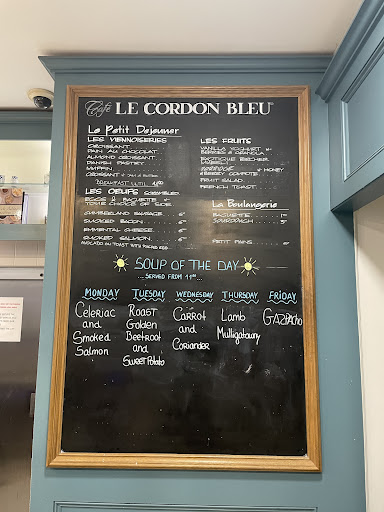 Café LE CORDON BLEU
Le Petit Dejeuner
LES VIENNOISERIES
CROISSANT
PAIN AU CHOCOLAT
ALMOND CROISSANT
DANISH PASTRY
MUFFIN
CROISSANT
BREAKFAST UNTIL
LES OEUFS SCRAMBLED
EGGS & BAGUETTE
YOUR CHOICE OF SIDE
CUMBERLAND SAUSAGE
SMOKED BACON
EMMENTAL CHEESE
SMOKED SALMON
AVOCADO ON TOAST WITH POACHED EGG
LES FRUITS
VANILLA YOGHURT
BERRIES & GRANOLA
EXOTIQUE BIRCHER
MUESLI
PORRIDGE HONEY
BERRY COMPOTE
FRUIT SALAD
FRENCH TOAST
La Boulangerie
BAGUETTE
SOURDOUGH
PETIT PAINS
SOUP OF THE DAY
... SERVED FROM
MONDAY
Celeriac
and
Smoked
Salmon
TUESDAY
Roast
Golden
Beetroot
and
Sweet Potato
WEDNESDAY
Carrot
and
Coriander
THURSDAY
Lamb
Mulligatawny
FRIDAY
GAZPACHO